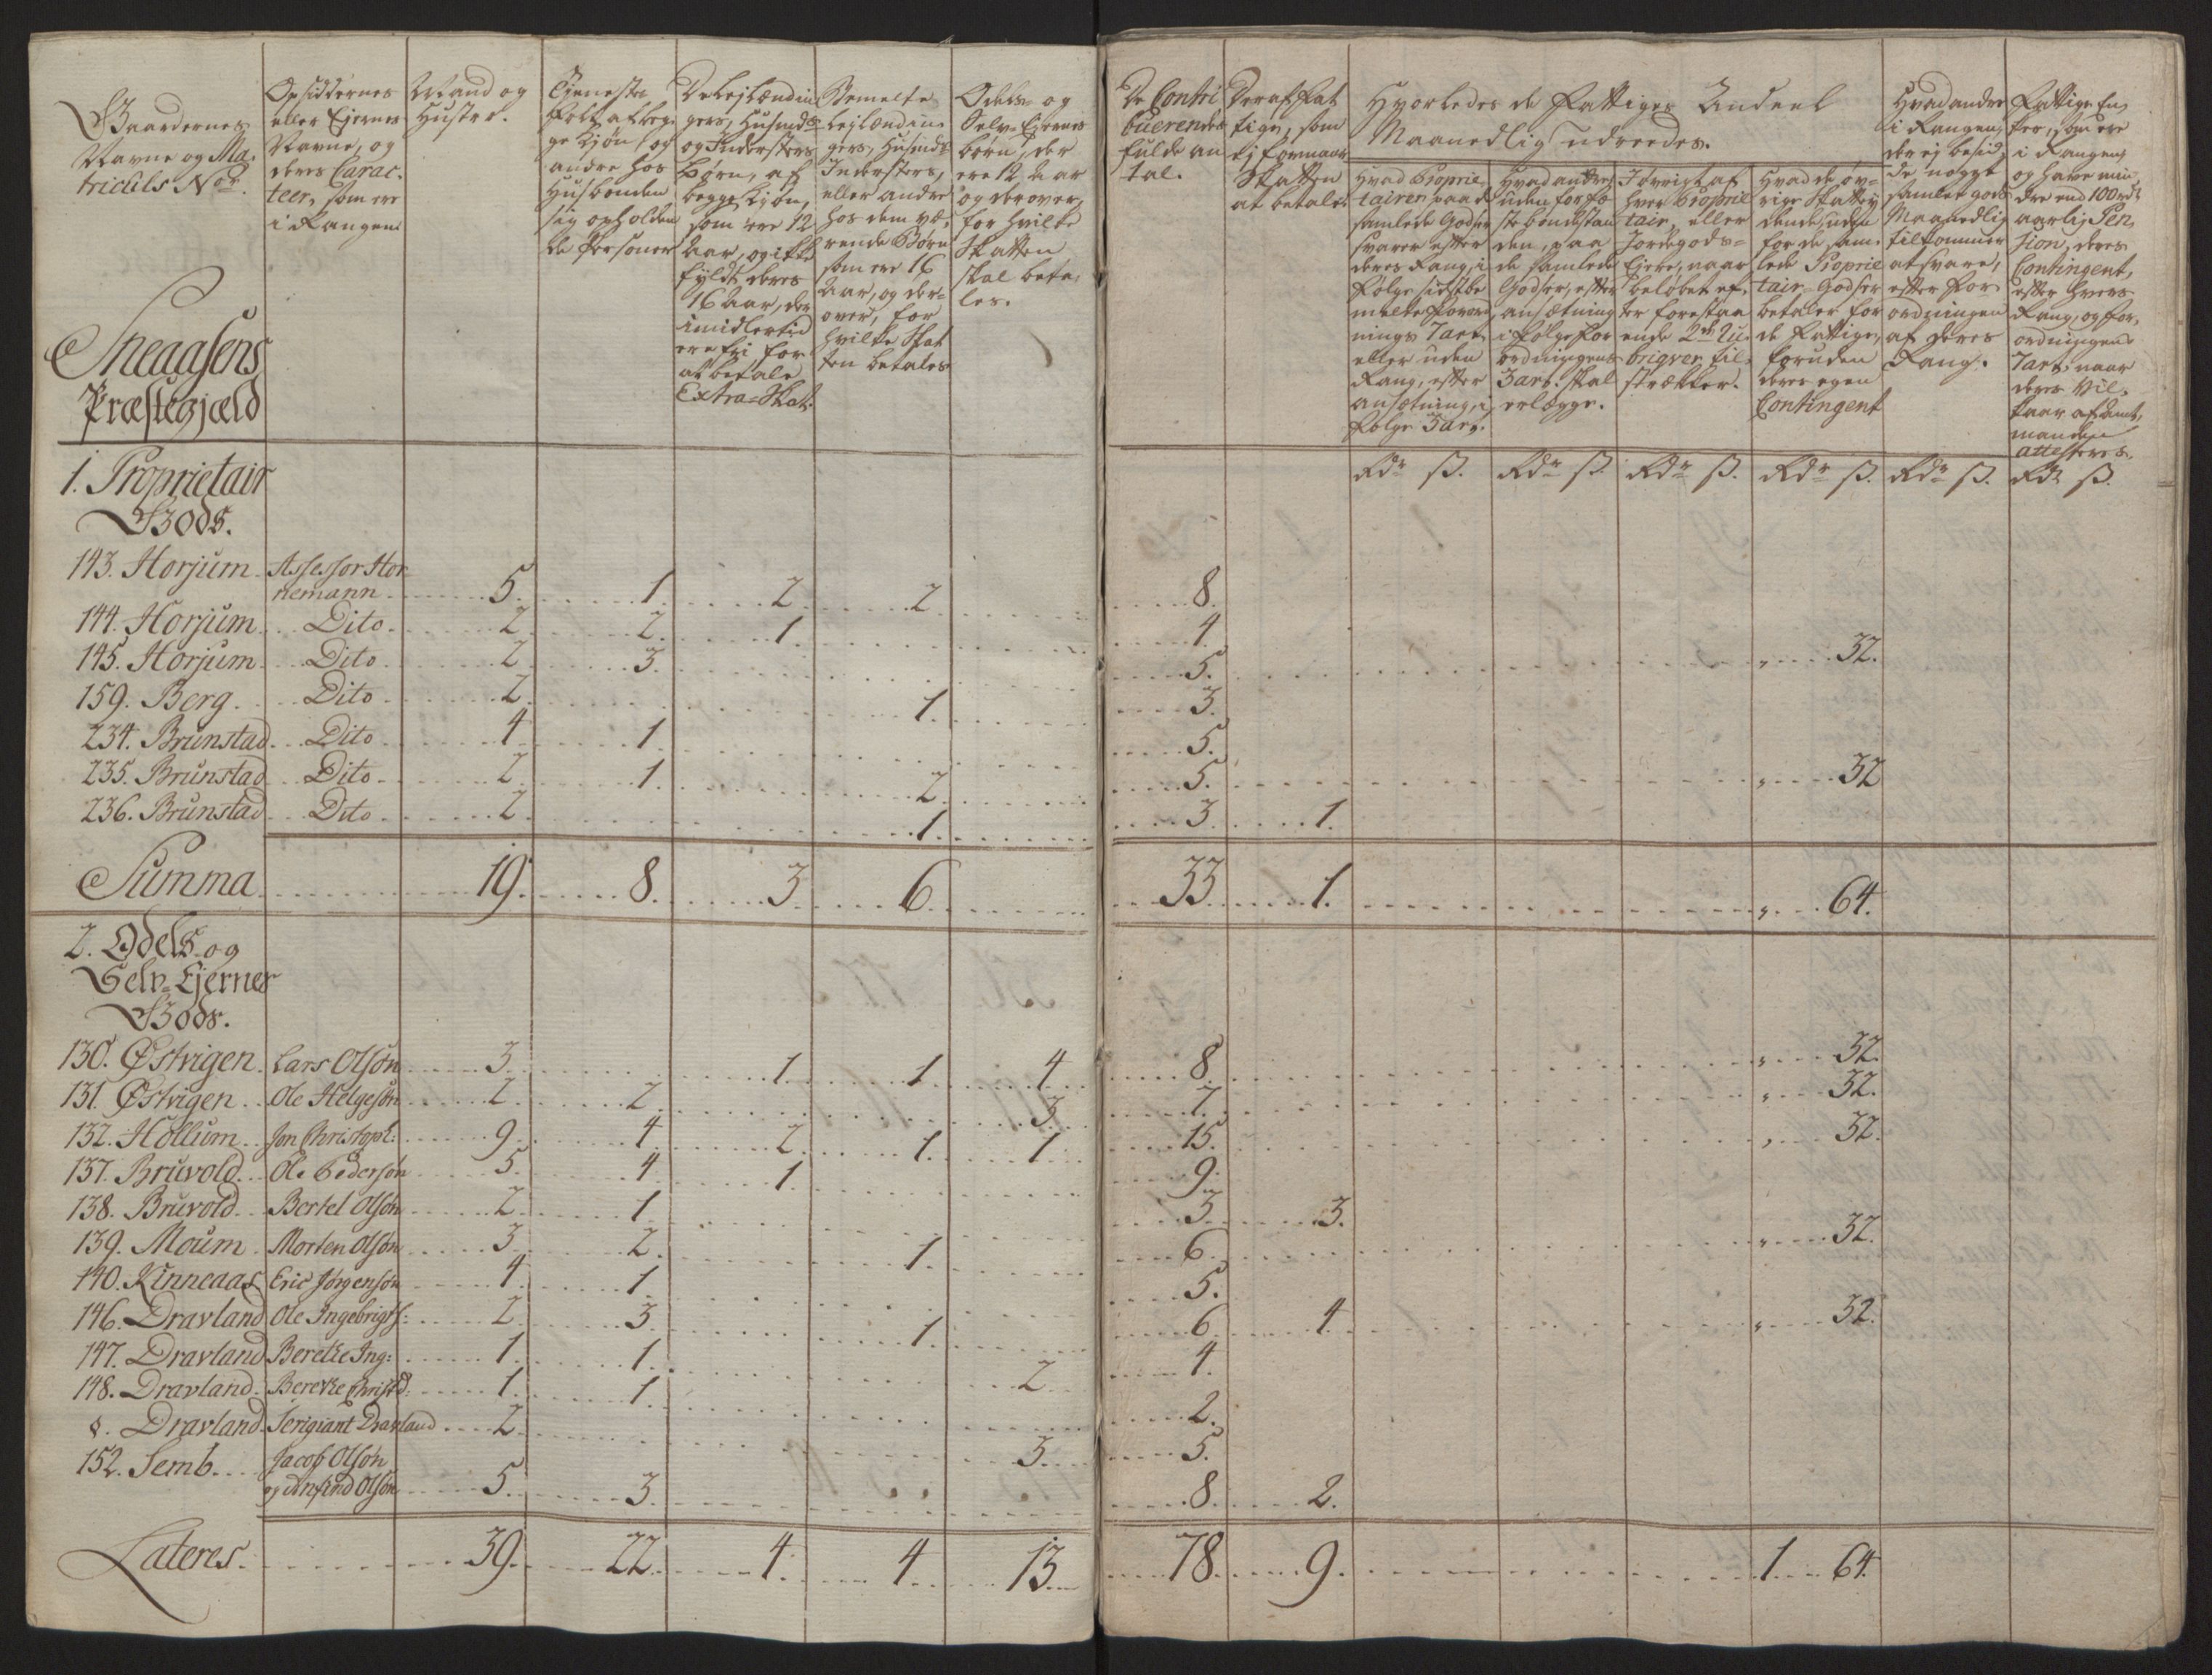 Gaardernes
Navne og Ma,
triculs No.
Sneaasens
Præstegjæld
Opsiddernes
eller Ejernes
Navne, og
deres Carac,
teer, som ere
i Rangen.
Mand og
Hustru.
Tjeneste
Folk af beg,
ge Kjøn og
andre hos
Husbonden
sig opholden
de Personer
De Lejlændin
gers, Husmds
og Indersters
Børn, af
begge Kjøn,
som ere 12
Aar, og ikke
fyldt deres
16 Aar, der
imidlertid
ere fri for
at betale
Extra-Skat.
Bemelte
Lejlændin,
gers, Husmds
Indersters,
eller andre
hos dem væ,
rende Børn
som ere 16
Aar, og der,
over, for
hvilke Skat
ten betales
Odels- og
Selv-Ejernes
børn, der
ere 12 Aar
og derover,
for hvilke
Skatten
skal beta,
les.
De Contri
buerendes
fulde an
tal.
Deraf Fat
tige, som
ej formaar
Skatten
at betale.
Hvorledes de Fattiges Andeel
Maanedlig udreedes.
Hvad Proprie,
tairen paa d
samlede Godser
svarer efter
deres Rang, i
Følge sidstbe
melte Forord,
nings 7 art.
eller uden
Rang, efter
ansætning, i
følge 3 art.
Hvad andre
uden for Bø
de samlede
Godser, efter
ansætning
i følge For
ordningens
3 art. skal
erlægge.
Jevrigt af
hver Proprie
tair, eller
Jordegods-
Ejere, naar
beløbet ef,
ter forestaa
ende 2de Ru,
briqver til,
strækker.
Hvad de øv-
rige Skatty
dende, uden
for de sam,
lede Proprie
tair-Godser
betaler for
de Fattige,
foruden
deres egen
Contingent
Hvad andre
i Rangen,
der ej besid,
de nogle
samlede gods
Maanedlig
tilkommer
at svare,
efter For
ordningen
af deres
Rang.
Fattige En,
ker, som ere
i Rangen,
og have min,
dre end 100 rdr
aarlig Pen,
sion, deres
Contingent,
efter hvers
Rang, og For,
ordningens
7 art, naar
deres Vil,
kaar af Amt,
manden
attesteres.
Rdr ß. Rdr ß Rdr ß. Rdr ß. Rdr ß. Rdr ß.
1. Proprietair
Gods.
143. Horjum. Assessor Hor
nemann. 5. 1. 2. 2. 8.
144. Horjum. Dito. 2. 2. 1. 4.
145. Horjum. Dito. 2. 3. 5. 32.
159. Berg. Dito. 2. 1. 3.
234. Brunstad. Dito 4. 1. 5.
235. Brunstad Dito. 2. 1. 2. 5. 32
236. Brunstad Dito. 2. 1. 3. 1.
Summa 19. 8. 3. 6. 33. 1. 64.
2. Odels og
Selv-Ejernes
Gods.
130. Østvigen. Lars Olsøn 3. 1. 1. 4. 8. 32.
131. Østvigen Ole Helgesøn 2. 2. 3. 7. 32.
132. Hollum. Jon Christoph: 9. 4. 2. 1. 1. 15. 32.
137. Bruvold. Ole Pedersøn 5. 4. 1. 9.
138. Bruvold. Bertel Olsøn 2. 1. 3. 3.
139. Moum. Morten Olsøn 3. 2. 1. 6. 32.
140. Kinneaas Eric Jørgensøn 4. 1. 5.
146. Dravland Ole Ingebrigts: 2. 3. 1. 6. 4. 32.
147. Dravland Berette Ing: 1. 1. 2. 4.
148. Dravland. Berette Christd: 1. 1. 2.
8. Dravland. Serigiant Dravland 2. 3. 5.
152. Semb. Jacob Olsøn
og Anfind Olsøn 5. 3. 8. 2.
Lateres. 39. 22. 4. 4. 13. 78. 9. 1. 64.